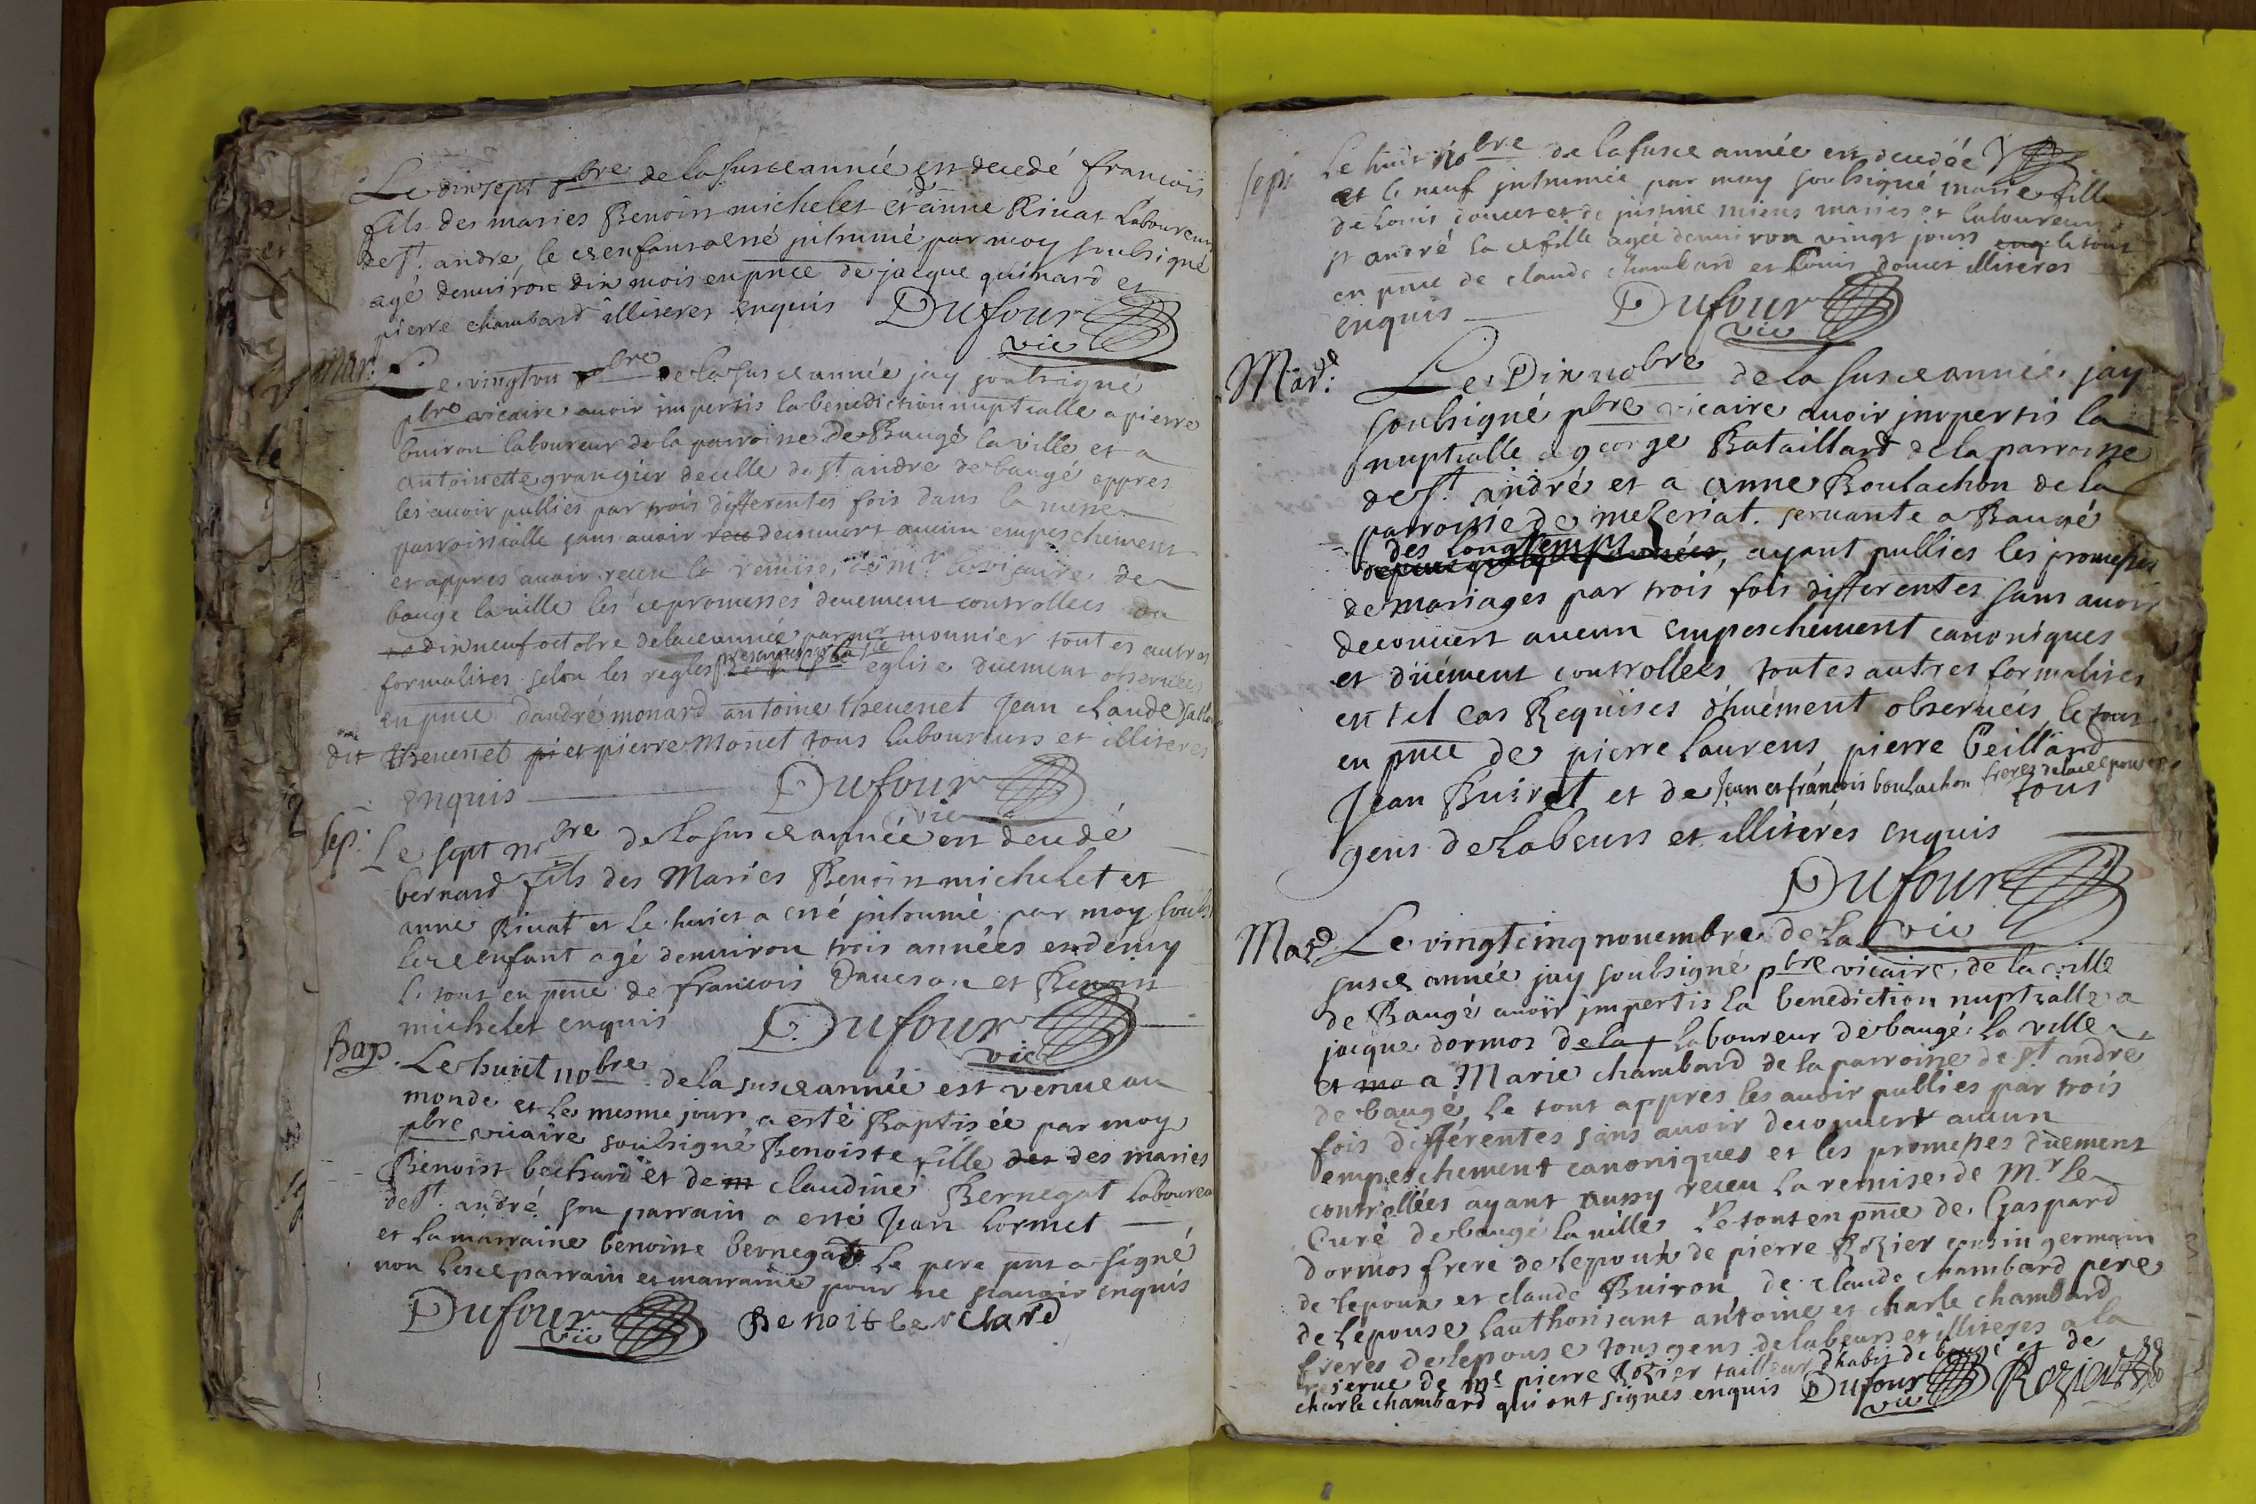 Le dixsept 8bre de la susd année est decedé francois
fils des maries Benoist michelet et d'anne Rivat Laboureurs
de st. andre, le d enfant a esté inhumé par moy soubsigné
agé denviron dix mois en pnce de jacque guinard et
pierre chambard illiteres enquis Dufour
vic
Mar: Le vingt 8bre de la susd année jay soubsigné
pbre vicaire avoir impertis la benediction nuptialle a pierre
buiron laboureur de la parroisse de Baugé la ville et a
antoinette grangier de celle de st andre de baugé appres
les avoir publies par trois differentes fois dans la messe
parroissialle sans avoir reu decouvert aucun empeschement
et appres avoir receu la remise de mr. le vicaire de
baugé la ville les d promesses deuement controllees du
dixneuf octobre de lad année par mr monnier toutes autres
formalites selon les regles eglise duement observées
en pnce dandré monard antoine thevenet Jean claude
dit thevenet pi et pierre Monet tous laboureurs et illiteres
enquis Dufour
vic
Sep: Le sept nobre de la susd année est decedé
bernard fils des Maries Benoist michelet et
anne Rivat et le huict a esté inhumé par moy soubs
led enfant agé denviron trois années et demy
le tout en pnce de francois et Benoist
michelet enquis Dufour
vic
Bap. Le huict nobre de la susd année est venue au
monde et le mesme jour a esté Baptisée par moy
pbre vicaire soubsigné Benoiste fille des des maries
Benoist bechard et de m claudine Bernegat Laboureu
de st. andré son parrain a esté Jean Cormet
et la marraine benoiste bernegat le pere pnt a signé
non lesd parrain et marraine pour ne scavoir enquis
Dufour Benoit bechard
vic
Sep: Le huit nobre de la susd année est decedée
et le neuf inhumée par moy soubsigné marie fille
de Louis doucet et de justine miens maries et laboureurs
st andré lad fille agée denviron vingt jours enq le tout
en pnce de claude chambard et Louis doucet illiteres
enquis Dufour
vic
Mard: Le Dix nobre de la susd année, jay
soubsigné pbre vicaire avoir impertis la
nuptialle a george Bataillard de la parroisse
de st. andré et a anne Boulachon de la
parroisse de mezeriat. servante a Baugé
des longtemps
depuis quelques années, ayant publies les promesses
de mariages par trois fois differentes sans avoir
decouvert aucun empeschement canoniques
et düement controllees toutes autres formalites
en tel cas Requises dhuément observées le tout
en pnce de pierre Laurens pierre Peillard
Jean Buiret et de Jean et francois boulachon freres de lad epouse
tous
gens de Labeurs et illiterés enquis
Dufour
vic
Mard Le vingtcinq novembre de la
susd année jay soubsigné pbre vicaire de la ville
de Baugé avoir impertis la benediction nuptialle a
jacque dormos de la laboureur de baugé la ville
et ma a Marie chambard de la parroisse de st andré
de baugé, le tout appres les avoir publies par trois
fois differentes sans avoir decouvert aucun
empeschement canoniques et les promesses duement
controllées ayant aussy receu la remise de Mr le
Curé de baugé la ville le tout en pnce de Gaspard
Dormos frere de lepoux de pierre Rozier cousin germain
de lepoux et claude Buiron, de claude chambard pere
de lepouse lauthorisant antoine et charle chambard
freres de lepouse tous gens de labeurs et illiteres a la
reserve de me pierre Rozier tailleur dhabit de baugé et de
charle chambard qui ont signes enquis Dufour Rozier
vic